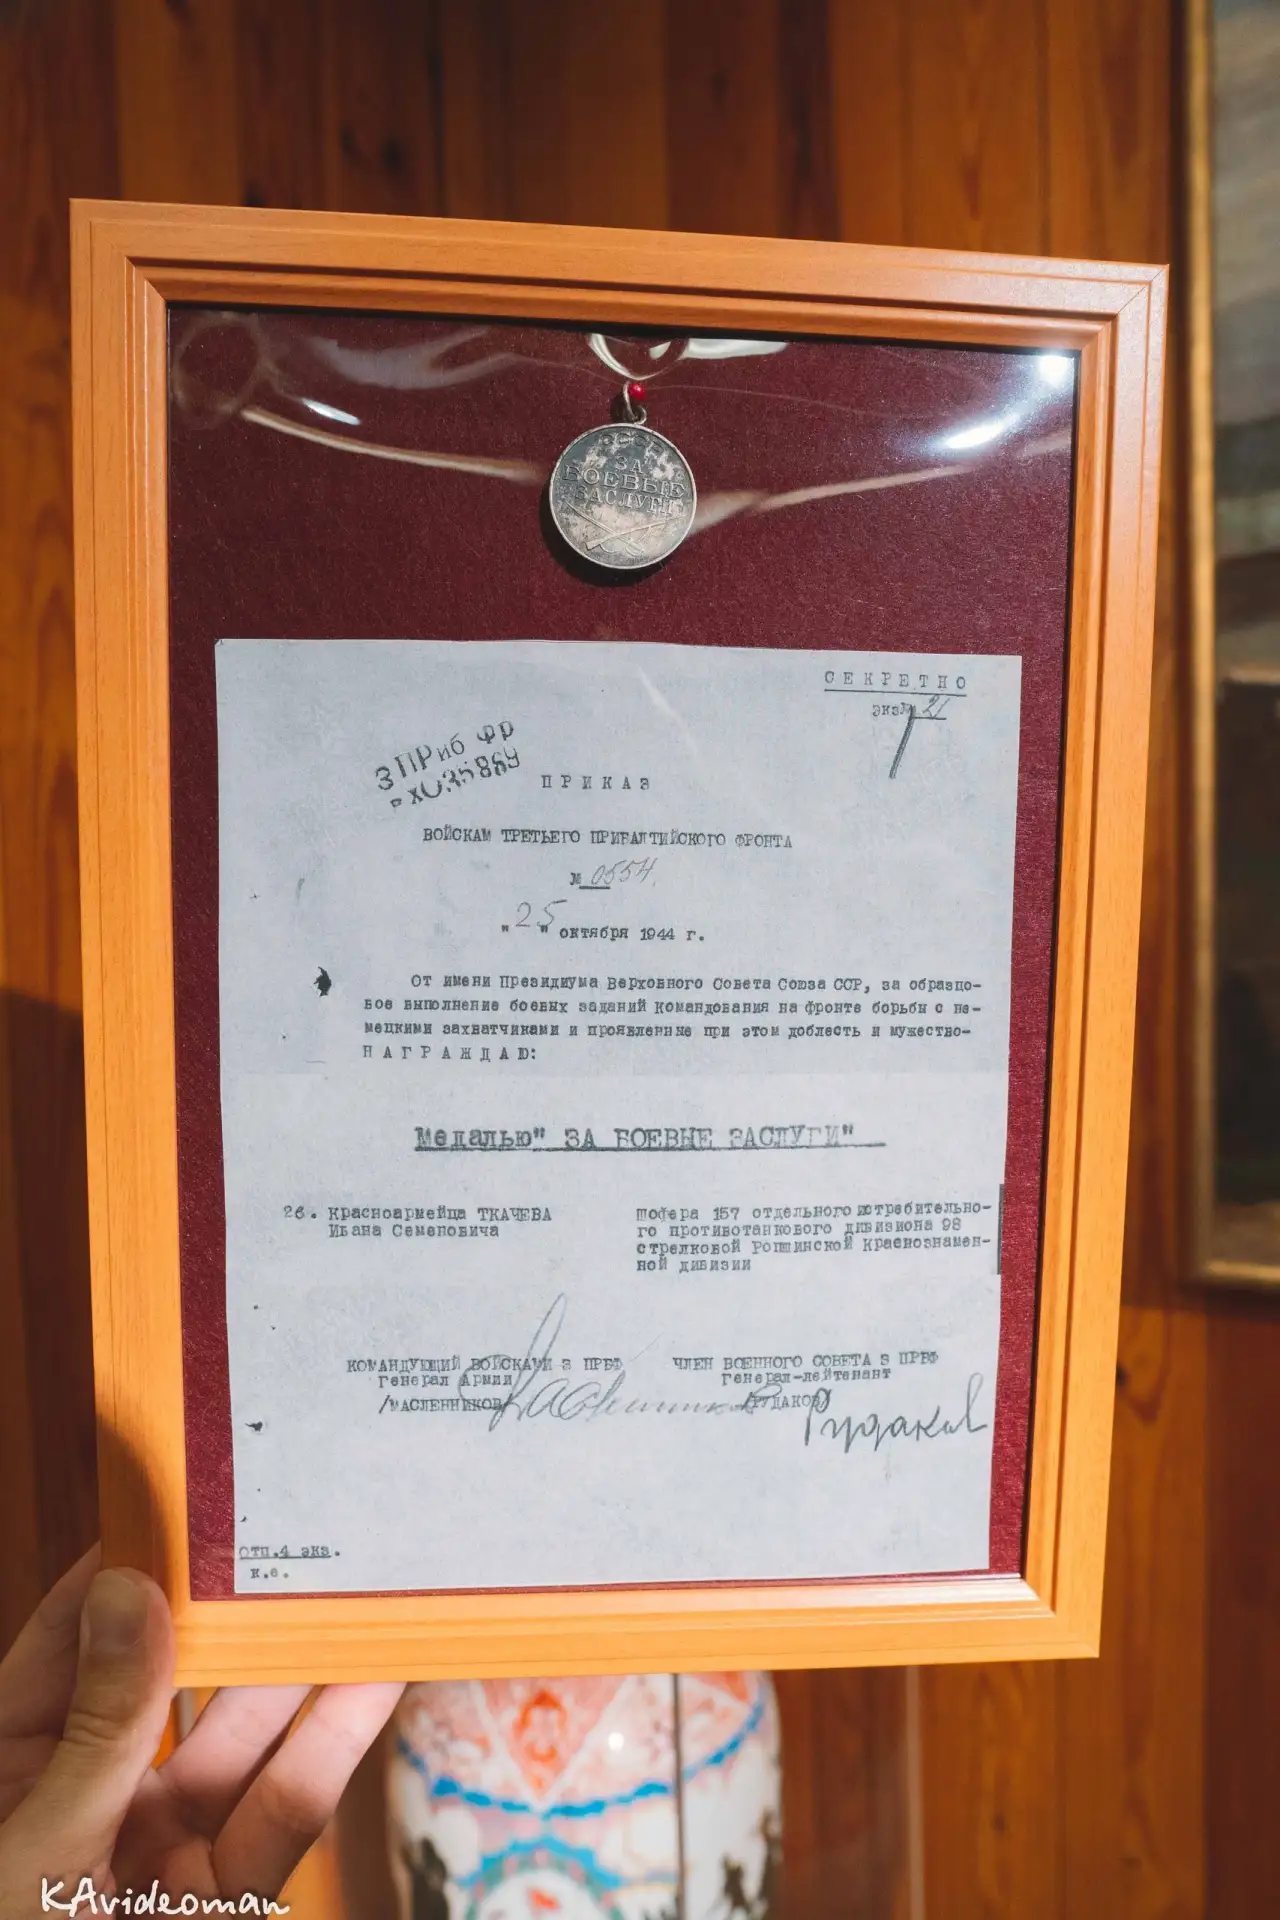 СССР
ЗА
БОЕВЫЕ
ЗАСЛУГИ
СЕКРЕТНО
экз№ 21
3 ПРиб фр
вх035869
ПРИКАЗ
ВОЙСКАМ ТРЕТЬЕГО ПРИБАЛТИЙСКОГО ФРОНТА
№ 0554
"25" октября 1944 г.
От имени Президиума Верховного Совета Союза ССР, за образцо-
вое выполнение боевых заданий командования на фронте борьбы с не-
мецкими захватчиками и проявленные при этом доблесть и мужество-
НАГРАЖДАЮ:
Медалью" ЗА БОЕВЫЕ ЗАСЛУГИ"
26. Красноармейца ТКАЧЕВА
Ивана Семеновича
шофера 157 отдельного истребительно-
го противотанкового дивизиона 98
стрелковой Ропшинской Краснознамен-
ной дивизии
КОМАНДУЮЩИЙ ВОЙСКАМИ 3 ПРБФ
Генерал Армии
/МАСЛЕННИКОВ/ Масленников
ЧЛЕН ВОЕННОГО СОВЕТА 3 ПРБФ
Генерал-лейтенант
/РУДАКОВ/
Рудаков
отп.4 экз.
к.е.
KAvideoman